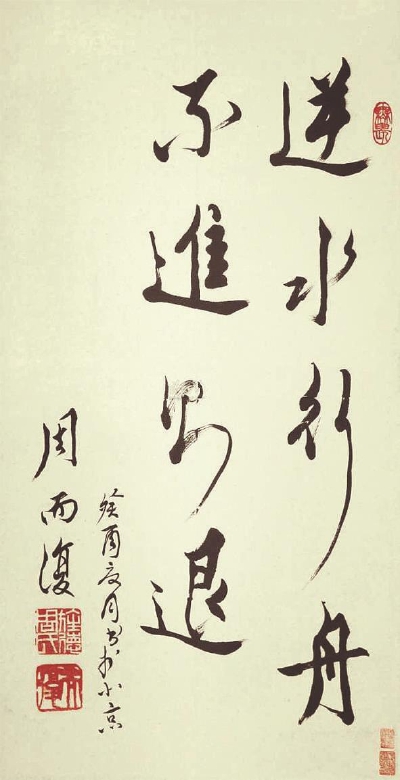 逆水行舟
不進則退
癸酉夏月書於北京
周而復